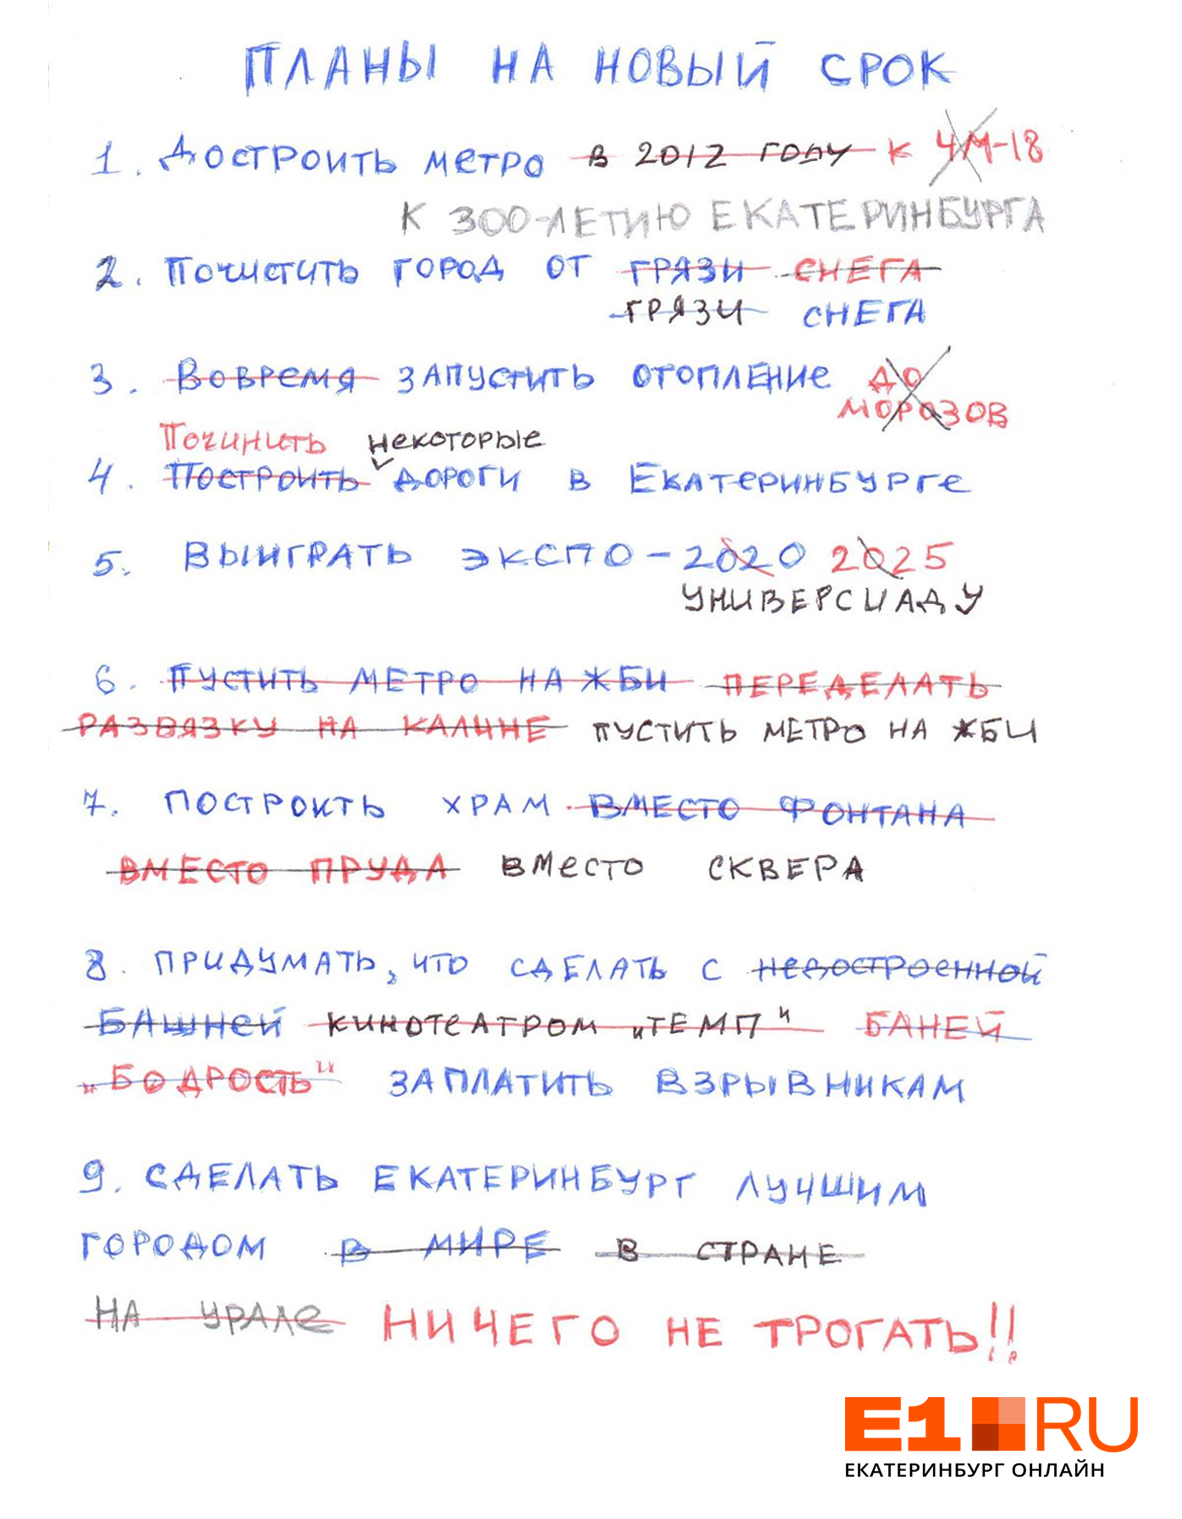 ПЛАНЫ НА НОВЫЙ СРОК
1. ДОСТРОИТЬ МЕТРО В 2012 ГОДУ К ЧМ-18
К 300-ЛЕТИЮ ЕКАТЕРИНБУРГА
2. ПОЧИСТИТЬ ГОРОД ОТ ГРЯЗИ СНЕГА
ГРЯЗИ СНЕГА
3. ВОВРЕМЯ ЗАПУСТИТЬ ОТОПЛЕНИЕ ДО
МОРОЗОВ
ПОЧИНИТЬ НЕКОТОРЫЕ
4. ПОСТРОИТЬ ДОРОГИ В ЕКАТЕРИНБУРГЕ
5. ВЫИГРАТЬ ЭКСПО-2020 2025
УНИВЕРСИАДУ
6. ПУСТИТЬ МЕТРО НА ЖБИ ПЕРЕДЕЛАТЬ
РАЗВЯЗКУ НА КАЛИНЕ ПУСТИТЬ МЕТРО НА ЖБИ
7. ПОСТРОИТЬ ХРАМ ВМЕСТО ФОНТАНА
ВМЕСТО ПРУДА ВМЕСТО СКВЕРА
8. ПРИДУМАТЬ, ЧТО СДЕЛАТЬ С НЕДОСТРОЕННОЙ
БАШНЕЙ КИНОТЕАТРОМ „ТЕМП" БАНЕЙ
„БОДРОСТЬ" ЗАПЛАТИТЬ ВЗРЫВНИКАМ
9. СДЕЛАТЬ ЕКАТЕРИНБУРГ ЛУЧШИМ
ГОРОДОМ В МИРЕ В СТРАНЕ
НА УРАЛЕ НИЧЕГО НЕ ТРОГАТЬ!!
E1 RU
ЕКАТЕРИНБУРГ ОНЛАЙН